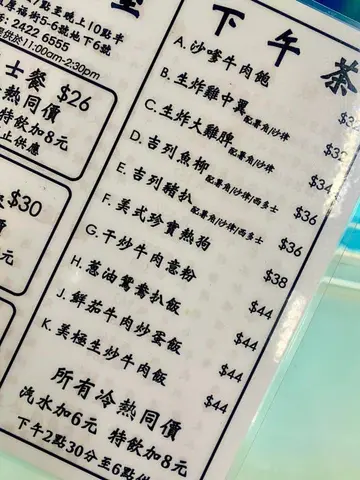 室
7點至晚上10點半
厚福街5-6號地下6號
: 2422 6555
供於11:00am-2:30pm
士餐 $26
熱同價
特飲加8元
止供應
$30
價
元
下午茶
A. 沙嗲牛肉飽
B. 生炸雞中翼 配薯角/沙律
C. 生炸大雞脾 配薯角/沙律
D. 吉列魚柳 配薯角/沙律/西多士 $34
E. 吉列豬扒 配薯角/沙律/西多士 $36
F. 美式珍寶熱狗 $36
G. 干炒牛肉意粉 $38
H. 蔥油鴛鴦扒飯 $44
J. 鮮茄牛肉炒蛋飯 $44
K. 美極生炒牛肉飯 $44
$44
所有冷熱同價
汽水加6元 特飲加8元
下午2點30分至6點供